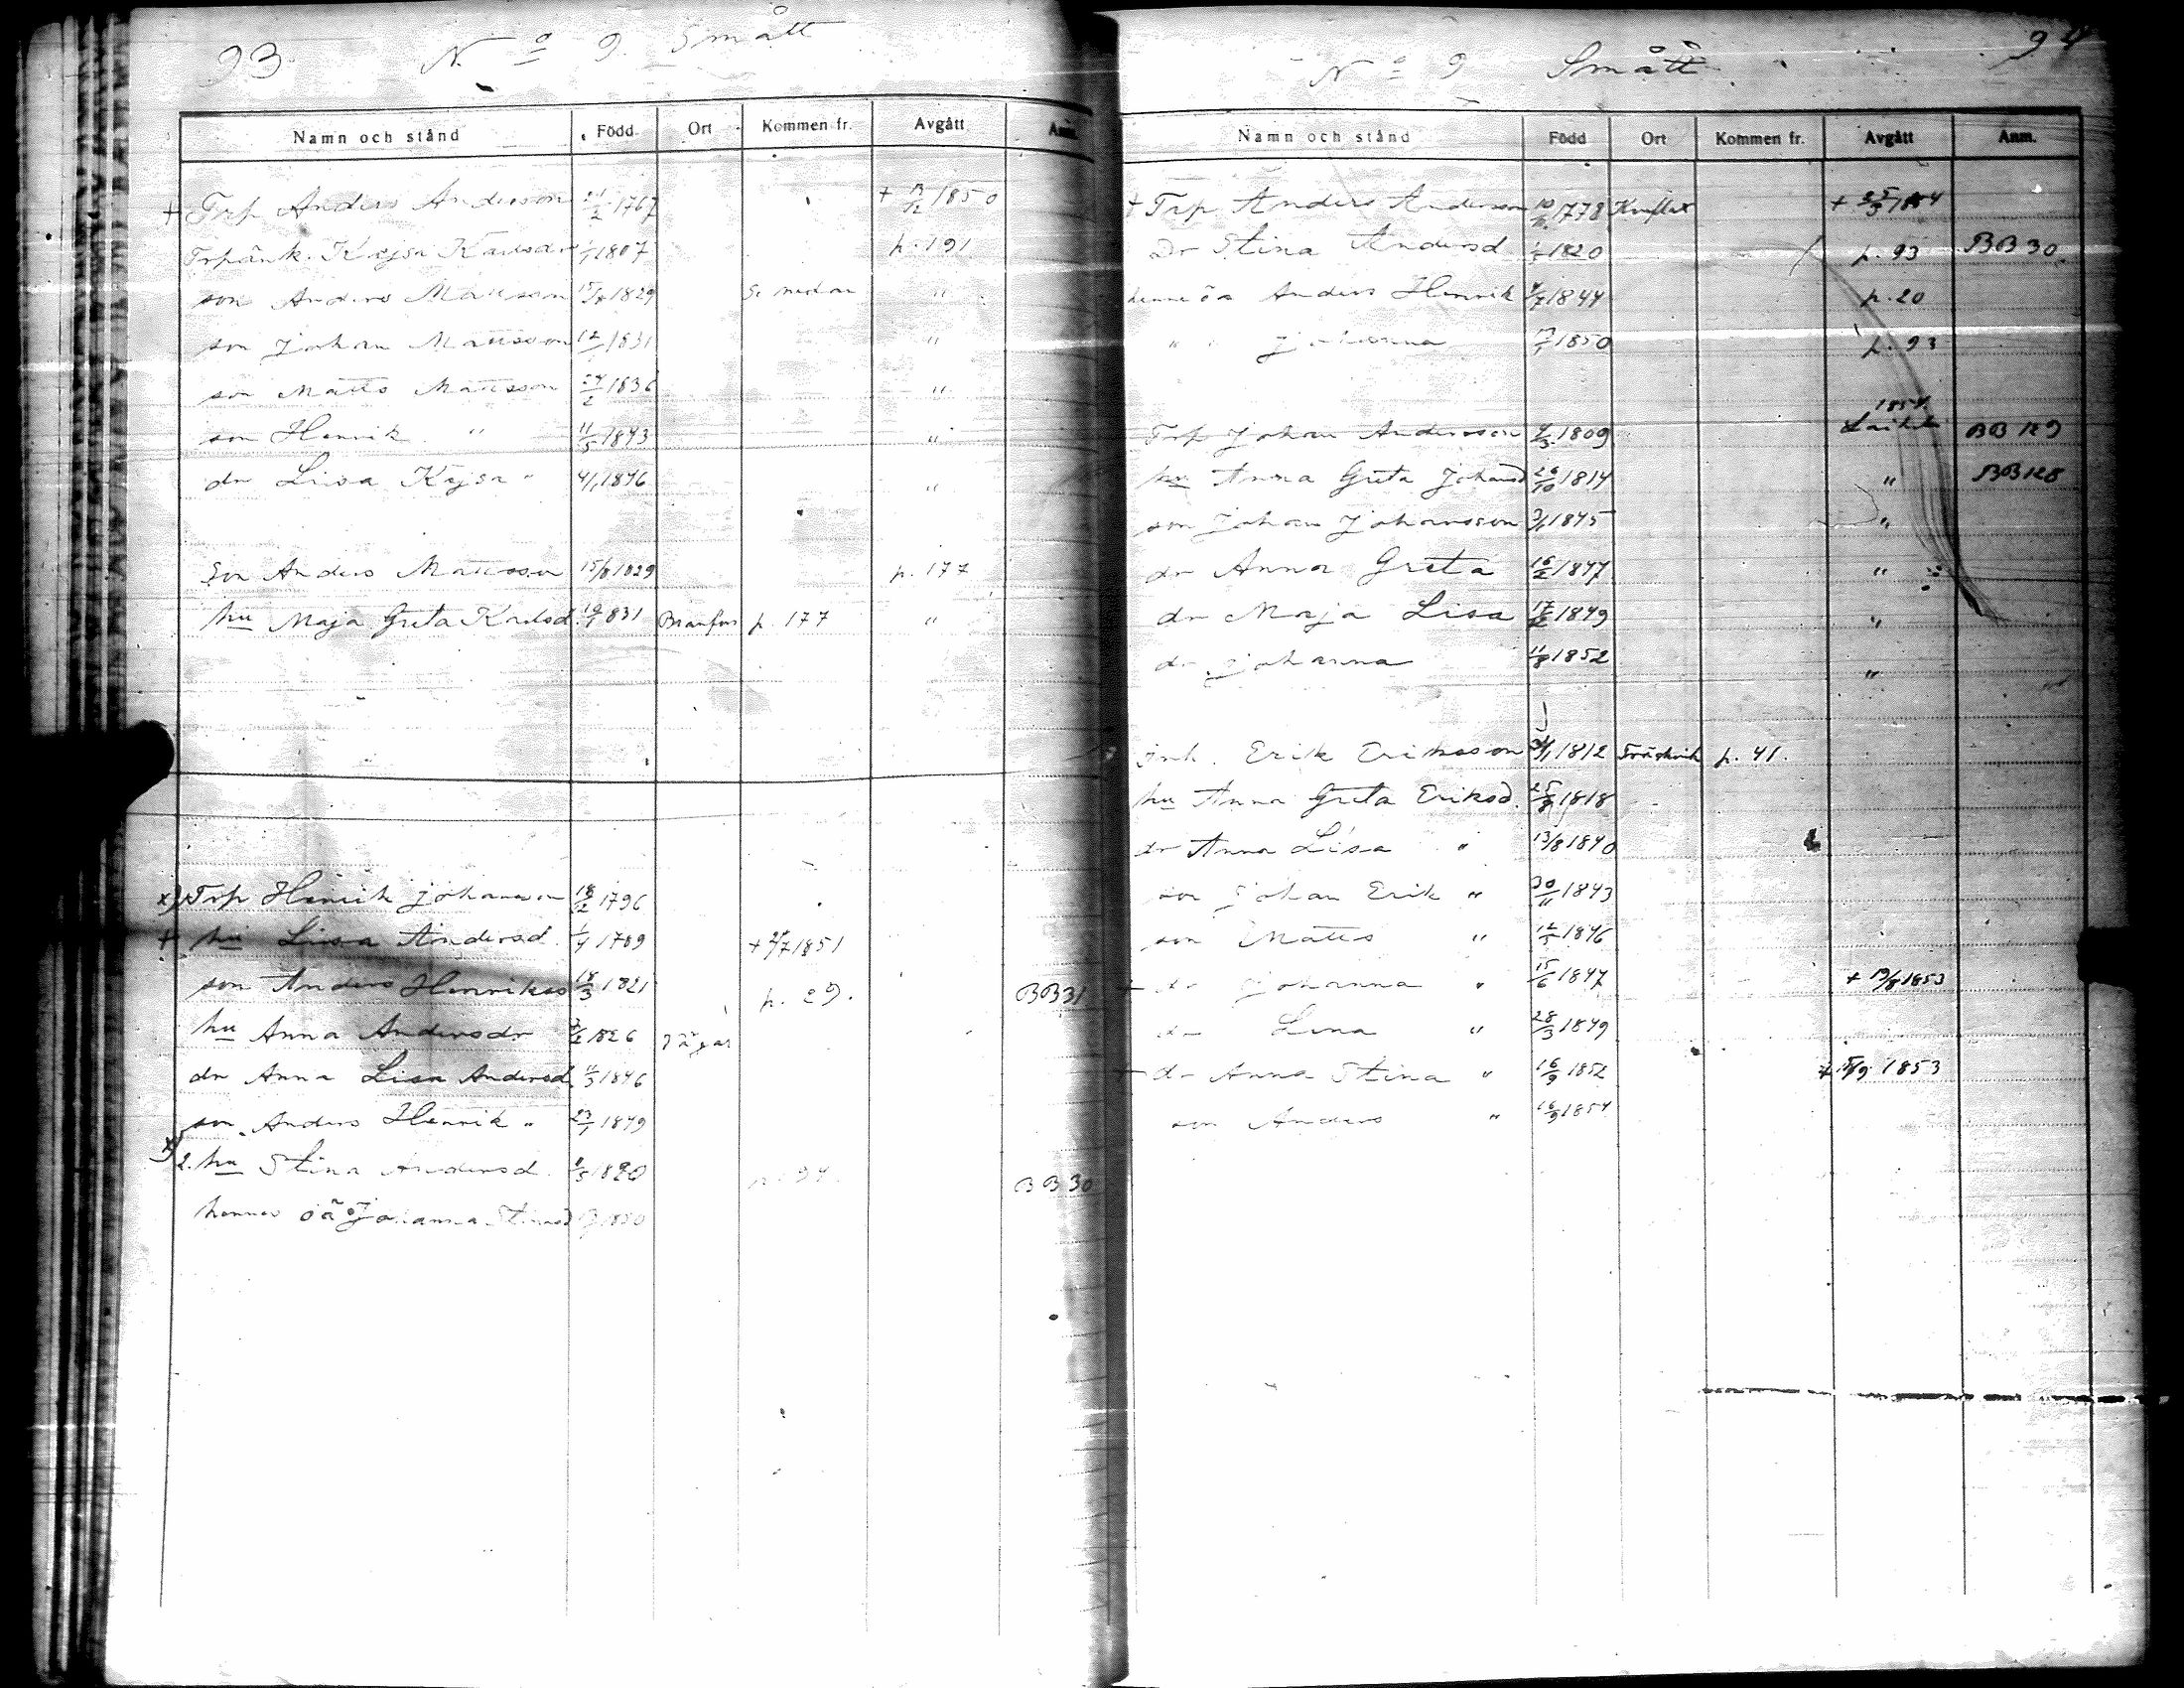 93 No 9. Smått
Namn och stånd Född Ort Kommen fr. Avgått Anm.
+ Trp Anders Andersson /2 1767 + 13/12 1850
Trpänk. Kajsa Karlsdr 1/1 1807 p. 191
son Anders Mattsson 15/8 1829 Se nedan "
son Johan Mattsson 12/1 1831 "
son Matts Mattsson 24/2 1836 "
son Henrik " 11/5 1843 "
dr Lisa Kajsa " 4/1 1846 "
Son Anders Mattsson 15/8 1829 p. 177
hu Maja Greta Karlsd. 19/1 831 p. 177 "
x) Trp Henrik Johansson 18/12 1796
+ hu Lisa Andersd. 1/4 1789 + /7 1851
son Anders Henrikss 18/3 1821 p. 29. BB31
hu Anna Andersdr /2 1826
dr Anna Lisa Andersd 11/3 1846
son Anders Henrik " 23/1 1849
x) 2. hu Stina Andersd. 1/5 1820 p. 94. BB30
hennes oä Johanna Stinasd 1850
No 9 Smått 94
Namn och stånd Född Ort Kommen fr. Avgått Anm.
+ Trp Anders Andersson 1778 + 25/3
Dr Stina Andersd 1820 p. 93 BB30.
hennes oä Anders Henrik /7 1844 p. 20
" " Johanna 1850 p. 93
1854
Trp Johan Andersson /3 1809 Laihela BB129
hu Anna Greta Johansd 26/10 1814 " BB128
son Johan Johansson 3/1 1845 "
dr Anna Greta 16/2 1847 "
dr Maja Lisa 1849 "
dr Johanna 11/8 1852 "
Inh. Erik Eriksson 1812 p. 41.
hu Anna Greta Eriksd. 25/8 1818
dr Anna Lisa " 13/8 1840
son Johan Erik " 30/11 1843
son Matts " 12/5 1846
+ dr Johanna " 15/6 1847 + 19/8 1853
dr Lena " 28/3 1849
+ dr Anna Stina " 16/9 1852 + 15/9 1853
son Anders " 16/9 1854